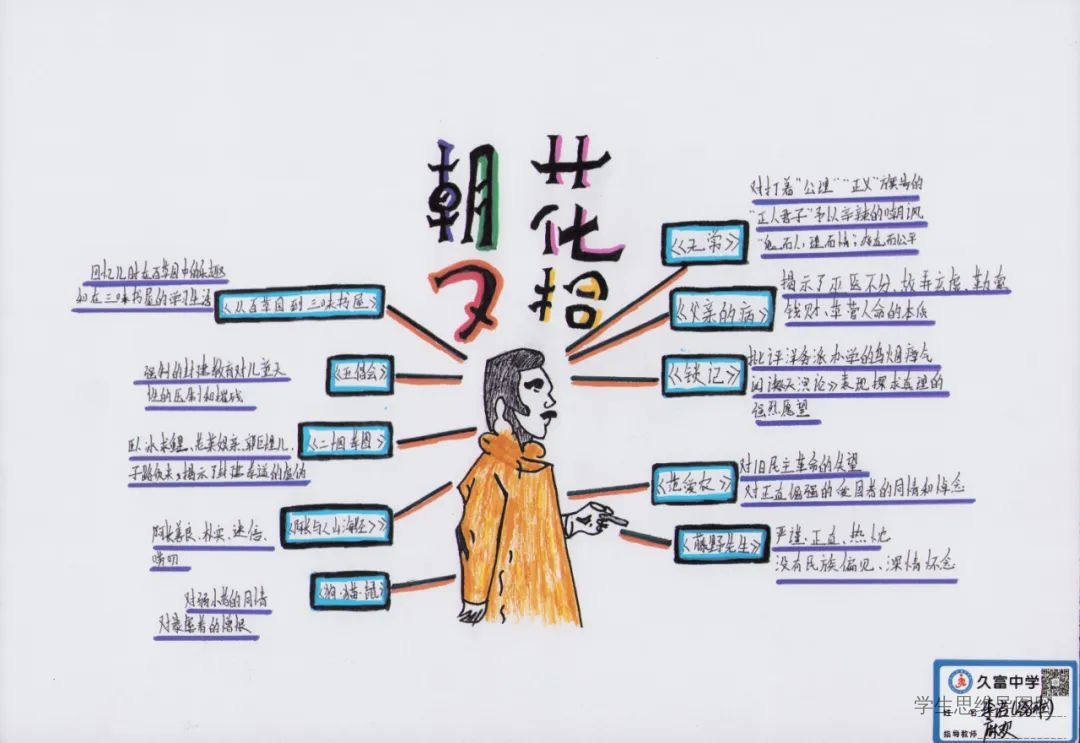 朝花
夕拾
《从百草园到三味书屋》
回忆儿时在百草园中的乐趣
和在三味书屋的学习生活
《五倡会》
强制的封建教育对儿童天
性的压制和摧残
《二十四孝图》
卧冰求鲤、老莱娱亲、郭巨埋儿、
子路负米,揭示了封建孝道的虚伪
《阿长与《山海经》》
阿长善良、朴实、迷信、
唠叨
《狗·猫·鼠》
对弱小者的同情
对暴虐者的憎恨
《无常》
对打着“公理”“正义”旗号的
“正人君子”予以辛辣的嘲讽
“鬼而人,理而情”
《父亲的病》
揭示了巫医不分、故弄玄虚、勒索
钱财、草菅人命的本质
《琐记》
批评洋务派办学的乌烟瘴气
阅读《天演论》表现探求真理的
强烈愿望
《范爱农》
对旧民主革命的失望
对正直倔强的爱国者的同情和悼念
《藤野先生》
严谨、正直、热忱
没有民族偏见、深情怀念
久富中学
学生思维导图
姓 名
指导教师